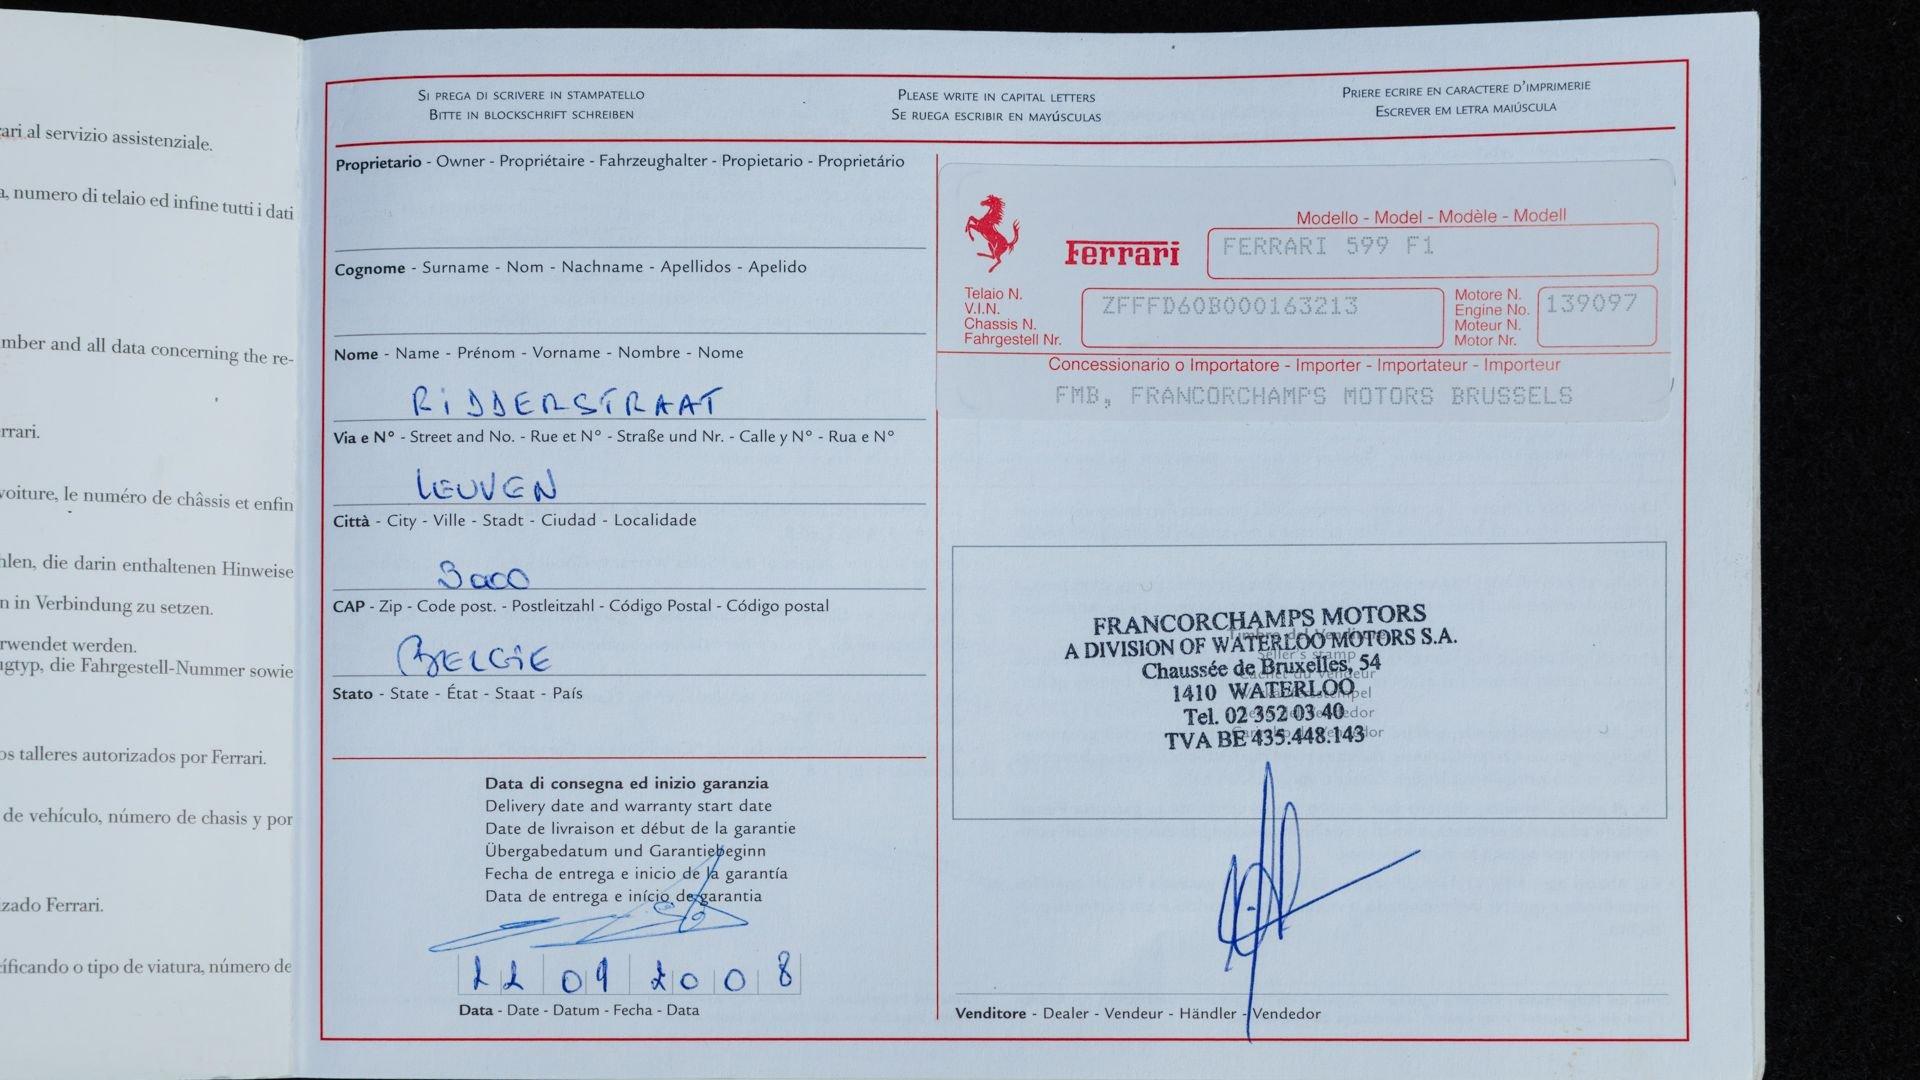 ari al servizio assistenziale.
a, numero di telaio ed infine tutti i dati
mber and all data concerning the re-
rrari.
voiture, le numéro de châssis et enfin
hlen, die darin enthaltenen Hinweise
n in Verbindung zu setzen.
rwendet werden.
gtyp, die Fahrgestell-Nummer sowie
os talleres autorizados por Ferrari.
de vehículo, número de chasis y por
zado Ferrari.
ificando o tipo de viatura, número de
SI PREGA DI SCRIVERE IN STAMPATELLO
BITTE IN BLOCKSCHRIFT SCHREIBEN
PLEASE WRITE IN CAPITAL LETTERS
SE RUEGA ESCRIBIR EN MAYÚSCULAS
PRIERE ECRIRE EN CARACTERE D'IMPRIMERIE
ESCREVER EM LETRA MAIÚSCULA
Proprietario - Owner - Propriétaire - Fahrzeughalter - Propietario - Proprietário
Cognome - Surname - Nom - Nachname - Apellidos - Apelido
Nome - Name - Prénom - Vorname - Nombre - Nome
RIDDERSTRAAT
Via e N° - Street and No. - Rue et N° - Straße und Nr. - Calle y N° - Rua e N°
LEUVEN
Città - City - Ville - Stadt - Ciudad - Localidade
3000
CAP - Zip - Code post. - Postleitzahl - Código Postal - Código postal
BELGIE
Stato - State - État - Staat - País
Data di consegna ed inizio garanzia
Delivery date and warranty start date
Date de livraison et début de la garantie
Übergabedatum und Garantiebeginn
Fecha de entrega e inicio de la garantía
Data de entrega e início de garantia
22 09 2008
Data - Date - Datum - Fecha - Data
Modello - Model - Modèle - Modell
Ferrari
FERRARI 599 F1
Telaio N.
V.I.N.
Chassis N.
Fahrgestell Nr.
ZFFFD60B000163213
Motore N.
Engine No.
Moteur N.
Motor Nr.
139097
Concessionario o Importatore - Importer - Importateur - Importeur
FMB, FRANCORCHAMPS MOTORS BRUSSELS
FRANCORCHAMPS MOTORS
A DIVISION OF WATERLOO MOTORS S.A.
Seller's stamp
Chaussée de Bruxelles, 54
1410 WATERLOO
Tel. 02 352 03 40
TVA BE 435.448.143
Venditore - Dealer - Vendeur - Händler - Vendedor